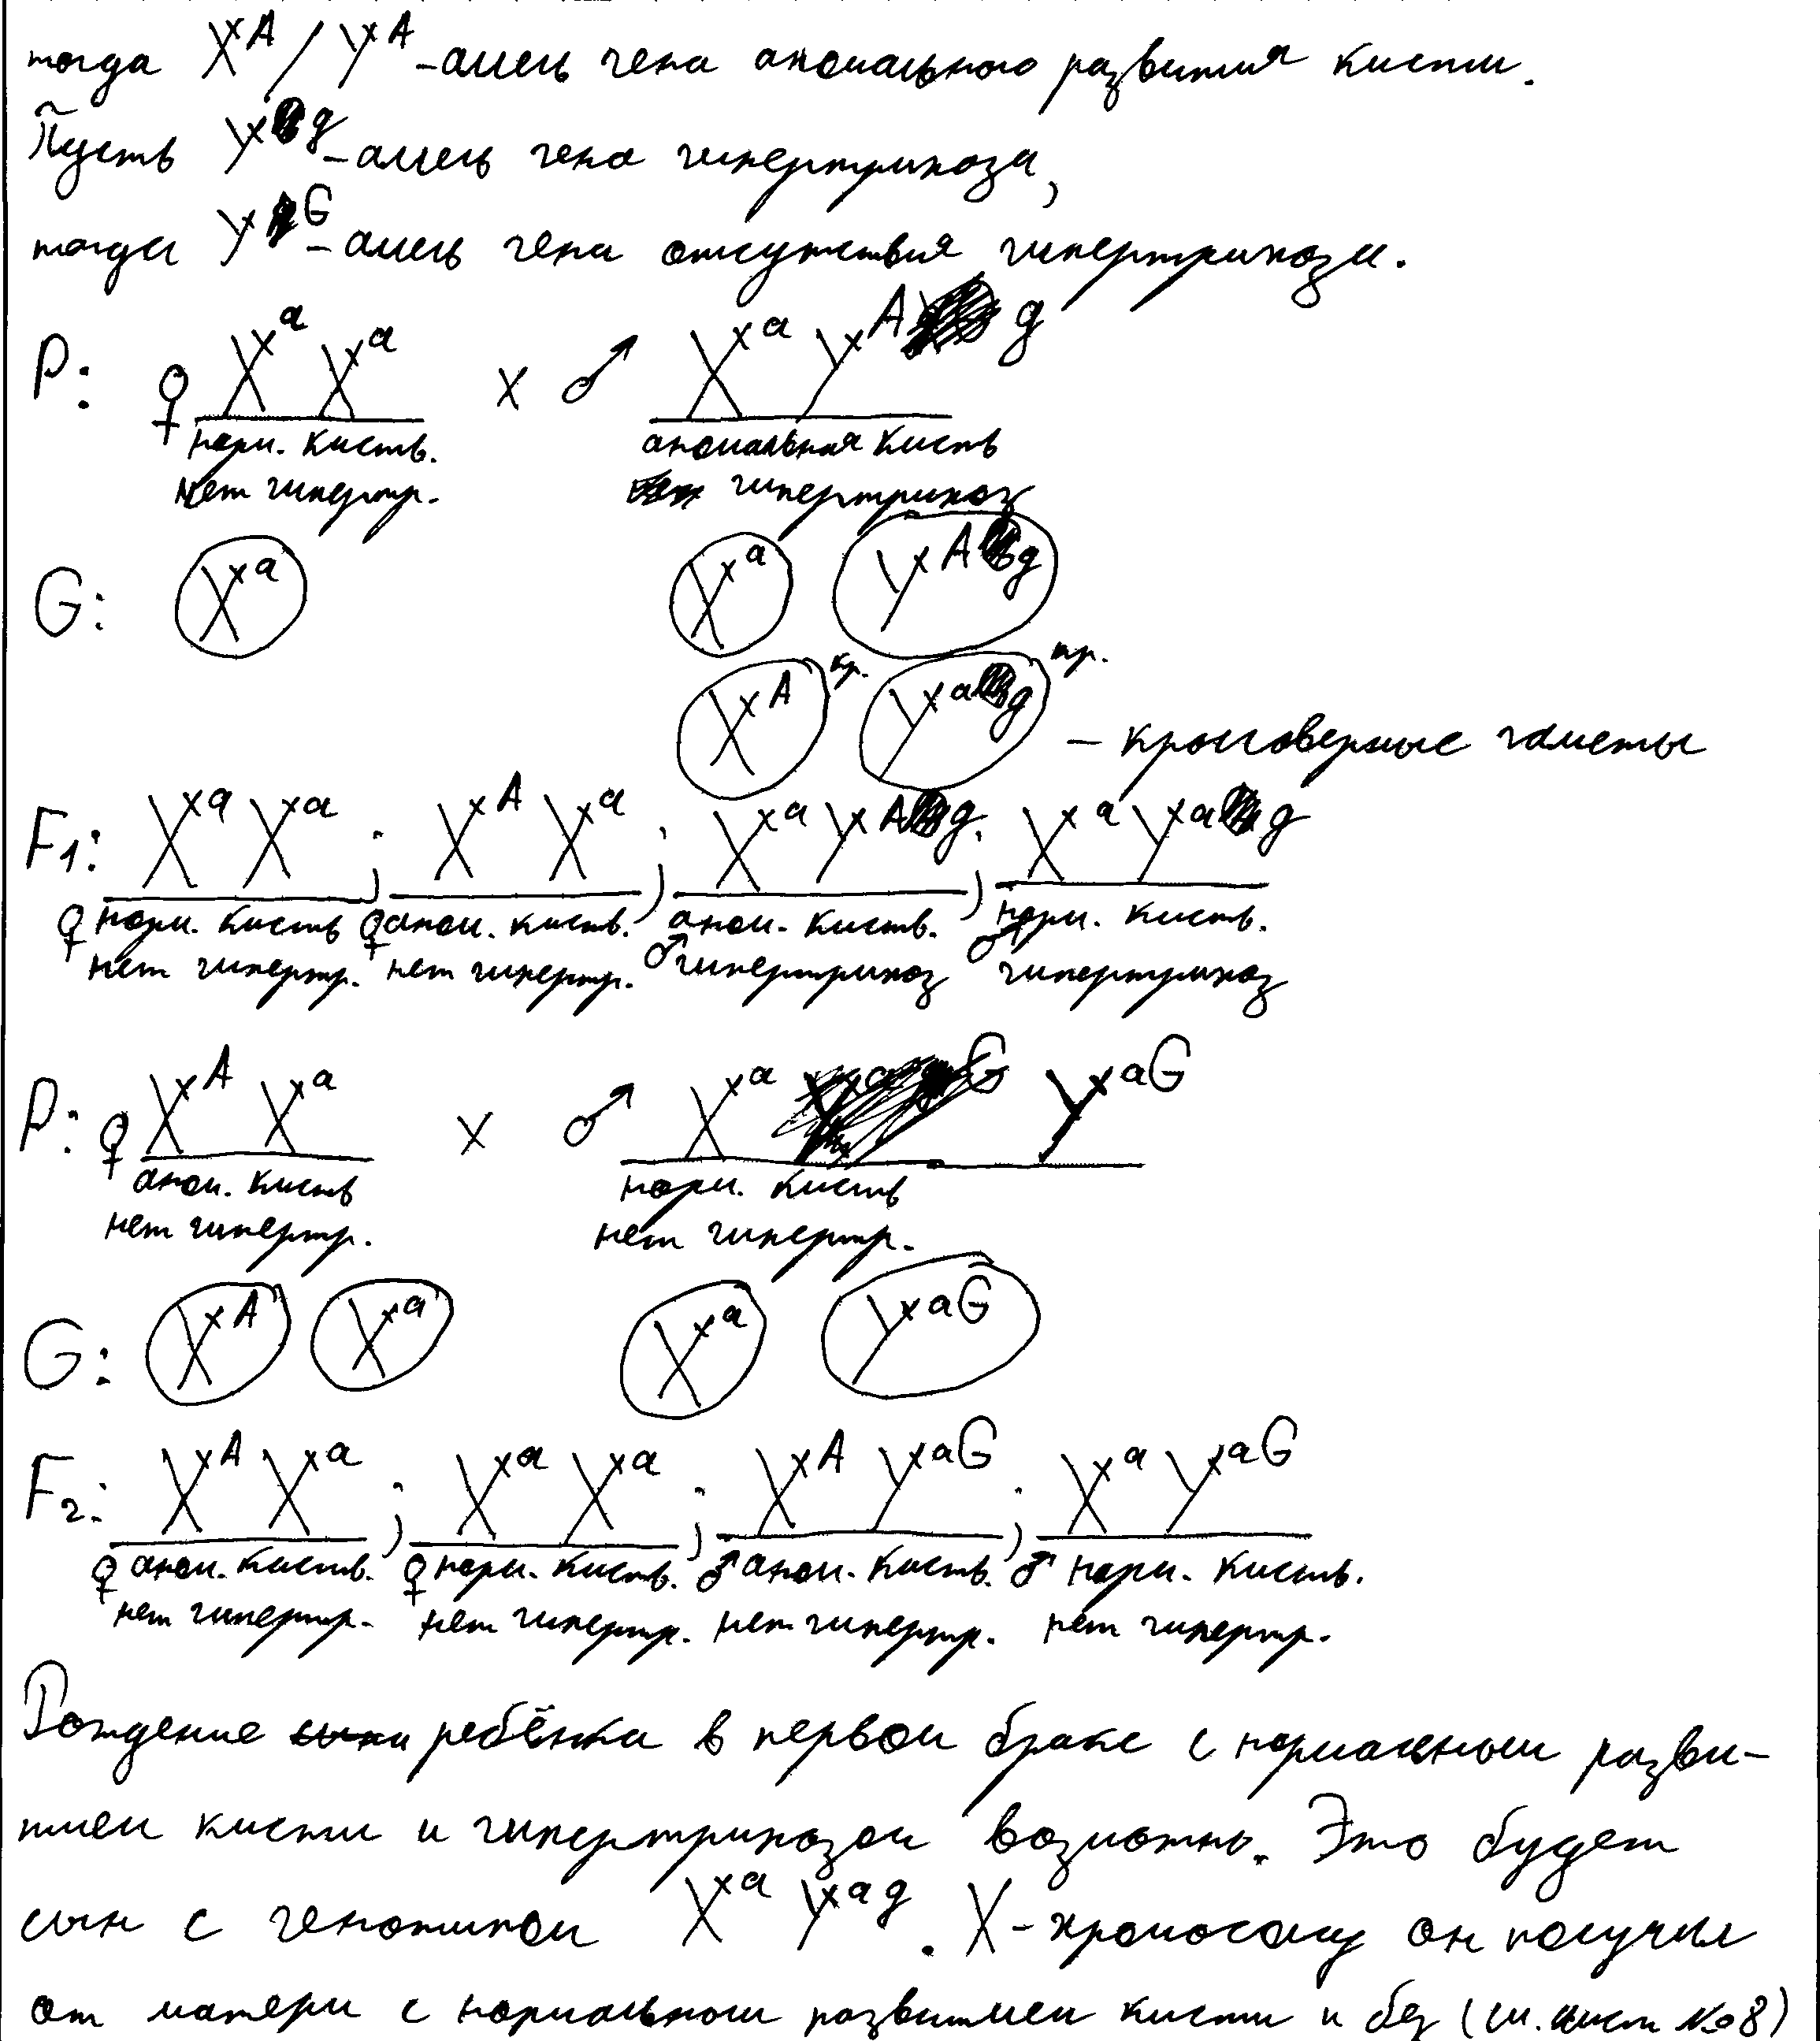 тогда X^A / Y^A - аллель гена аномального развития кисти.
Пусть Y^g - аллель гена гипертрихоза,
тогда Y^G - аллель гена отсутствия гипертрихоза.
P: ♀ X^a X^a x ♂ X^a Y^Ag
норм. кисть. аномальная кисть
нет гипертр. гипертрихоз
G: X^a X^a Y^Ag
X^A кр. Y^ag кр. - кроссоверные гаметы
F1: X^a X^a ; X^A X^a ; X^a Y^Ag ; X^a Y^ag
♀ норм. кисть ♀ аном. кисть. ♂ аном. кисть. ♂ норм. кисть.
нет гипертр. нет гипертр. гипертрихоз гипертрихоз
P: ♀ X^A X^a x ♂ X^a Y^aG
аном. кисть норм. кисть
нет гипертр. нет гипертр.
G: X^A X^a X^a Y^aG
F2: X^A X^a ; X^a X^a ; X^A Y^aG ; X^a Y^aG
♀ аном. кисть. ♀ норм. кисть. ♂ аном. кисть. ♂ норм. кисть.
нет гипертр. нет гипертр. нет гипертр. нет гипертр.
Рождение ребёнка в первом браке с нормальным разви-
тием кисти и гипертрихозом возможно. Это будет
сын с генотипом X^a Y^ag. X-хромосому он получил
от матери с нормальном развитием кисти и без (см. лист №8)